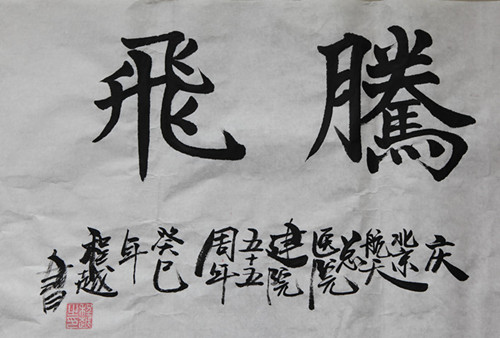 騰飛
庆
北京
航天
总
医院
建院
五十五
周年
癸巳
年
程越
书